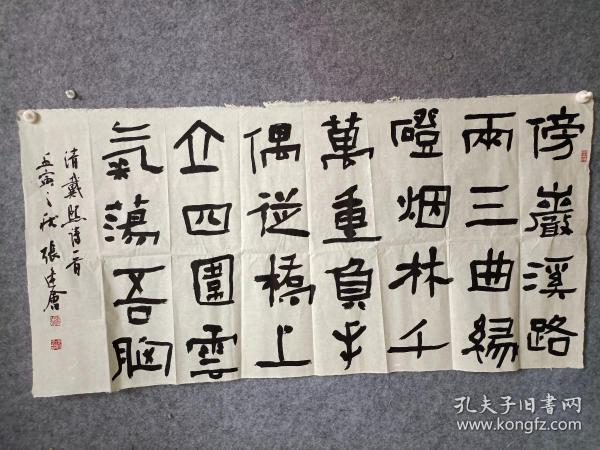 傍巖溪路
兩三曲緣
磴烟林千
萬重負手
偶從橋上
立四圍雲
氣蕩吾胸
清戴熙詩一首
壬寅之秋張建會
孔夫子旧书网
www.kongfz.com